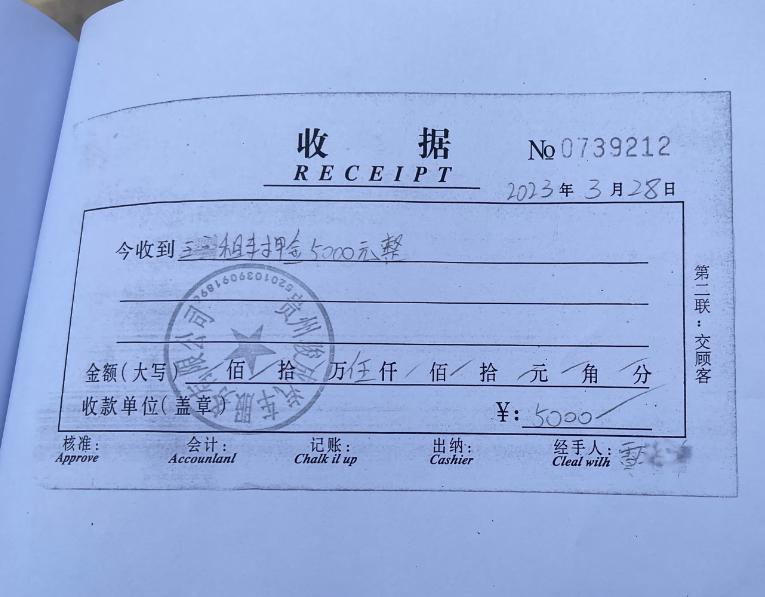 收 据
RECEIPT
No 0739212
2023年3月28日
今收到 租车押金5000元整
金额(大写) 佰 拾 万 伍仟 佰 拾 元 角 分
收款单位(盖章) ¥: 5000
核准: 会计: 记账: 出纳: 经手人:
Approve Accountanl Chalk il up Cashier Cleal wilh
第二联:交顾客
5201039091896